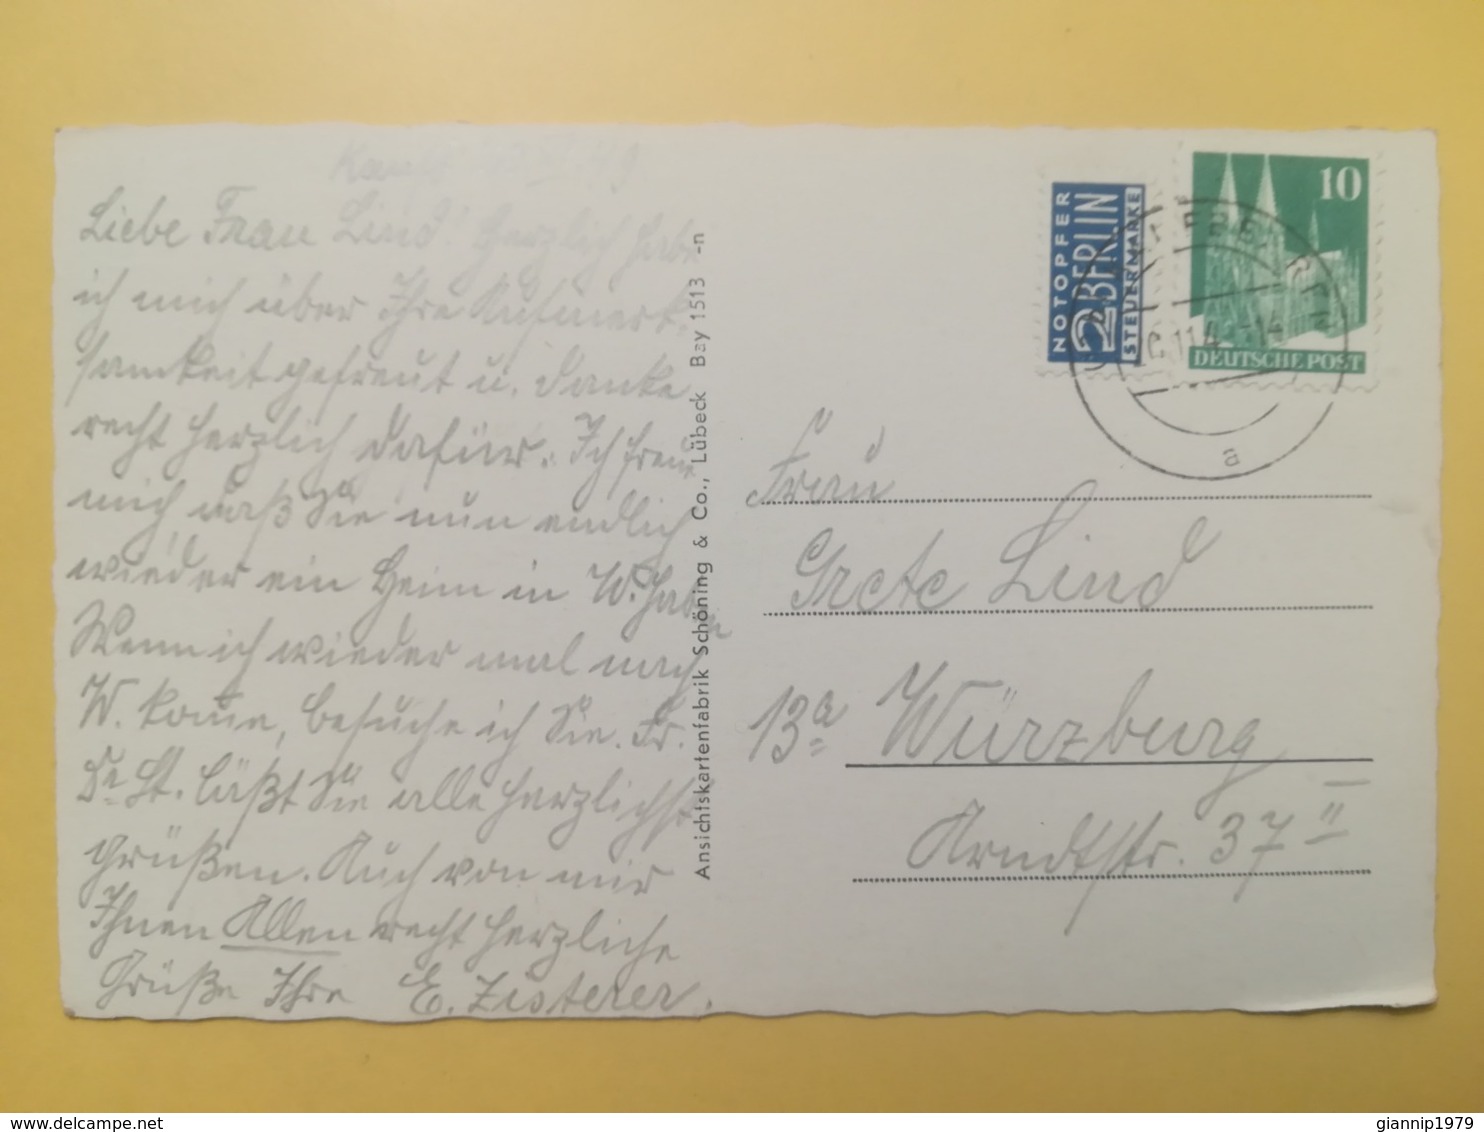 Liebe Frau Lind! Herzlich habe
ich mich über Ihre Aufmerk-
samkeit gefreut u. danke
recht herzlich dafür. Ich freue
mich, daß Sie nun endlich
wieder ein Heim in W. haben
Wenn ich wieder mal nach
W. komme, besuche ich Sie. Fr.
Dr. St. läßt Sie alle herzlichst
grüßen. Auch von mir
Ihnen Allen recht herzliche
Grüße Ihre E. Zisterer.
Ansichtskartenfabrik Schöning & Co., Lübeck Bay 1513 -n
NOTOPFER
2 BERLIN
STEUERMARKE
10
DEUTSCHE POST
a
Frau
Grete Lind
13a Würzburg
Arndtstr. 37 II
giannip1979